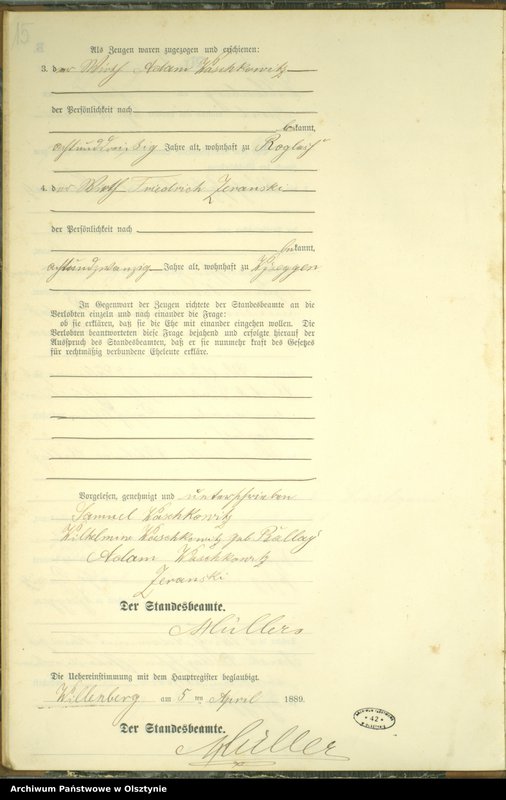 15
Als Zeugen waren zugezogen und erschienen:
3. der Wirth Adam Waschkowitz
der Persönlichkeit nach
bekannt,
achtunddreißig Jahre alt, wohnhaft zu
4. der Wirth Friedrich Jeranski
der Persönlichkeit nach
bekannt,
achtundzwanzig Jahre alt, wohnhaft zu
In Gegenwart der Zeugen richtete der Standesbeamte an die
Verlobten einzeln und nach einander die Frage:
ob sie erklären, daß sie die Ehe mit einander eingehen wollen. Die
Verlobten beantworteten diese Frage bejahend und erfolgte hierauf der
Ausspruch des Standesbeamten, daß er sie nunmehr kraft des Gesetzes
für rechtmäßig verbundene Eheleute erkläre.
Vorgelesen, genehmigt und unterschrieben
Samuel Waschkowitz
Wilhelmine Waschkowitz geb.
Adam Waschkowitz
Jeranski
Der Standesbeamte.
Müllers
Die Uebereinstimmung mit dem Hauptregister beglaubigt.
Willenberg am 5 ten April 1889.
Der Standesbeamte.
Müller
* 42 *
Archiwum Państwowe w Olsztynie